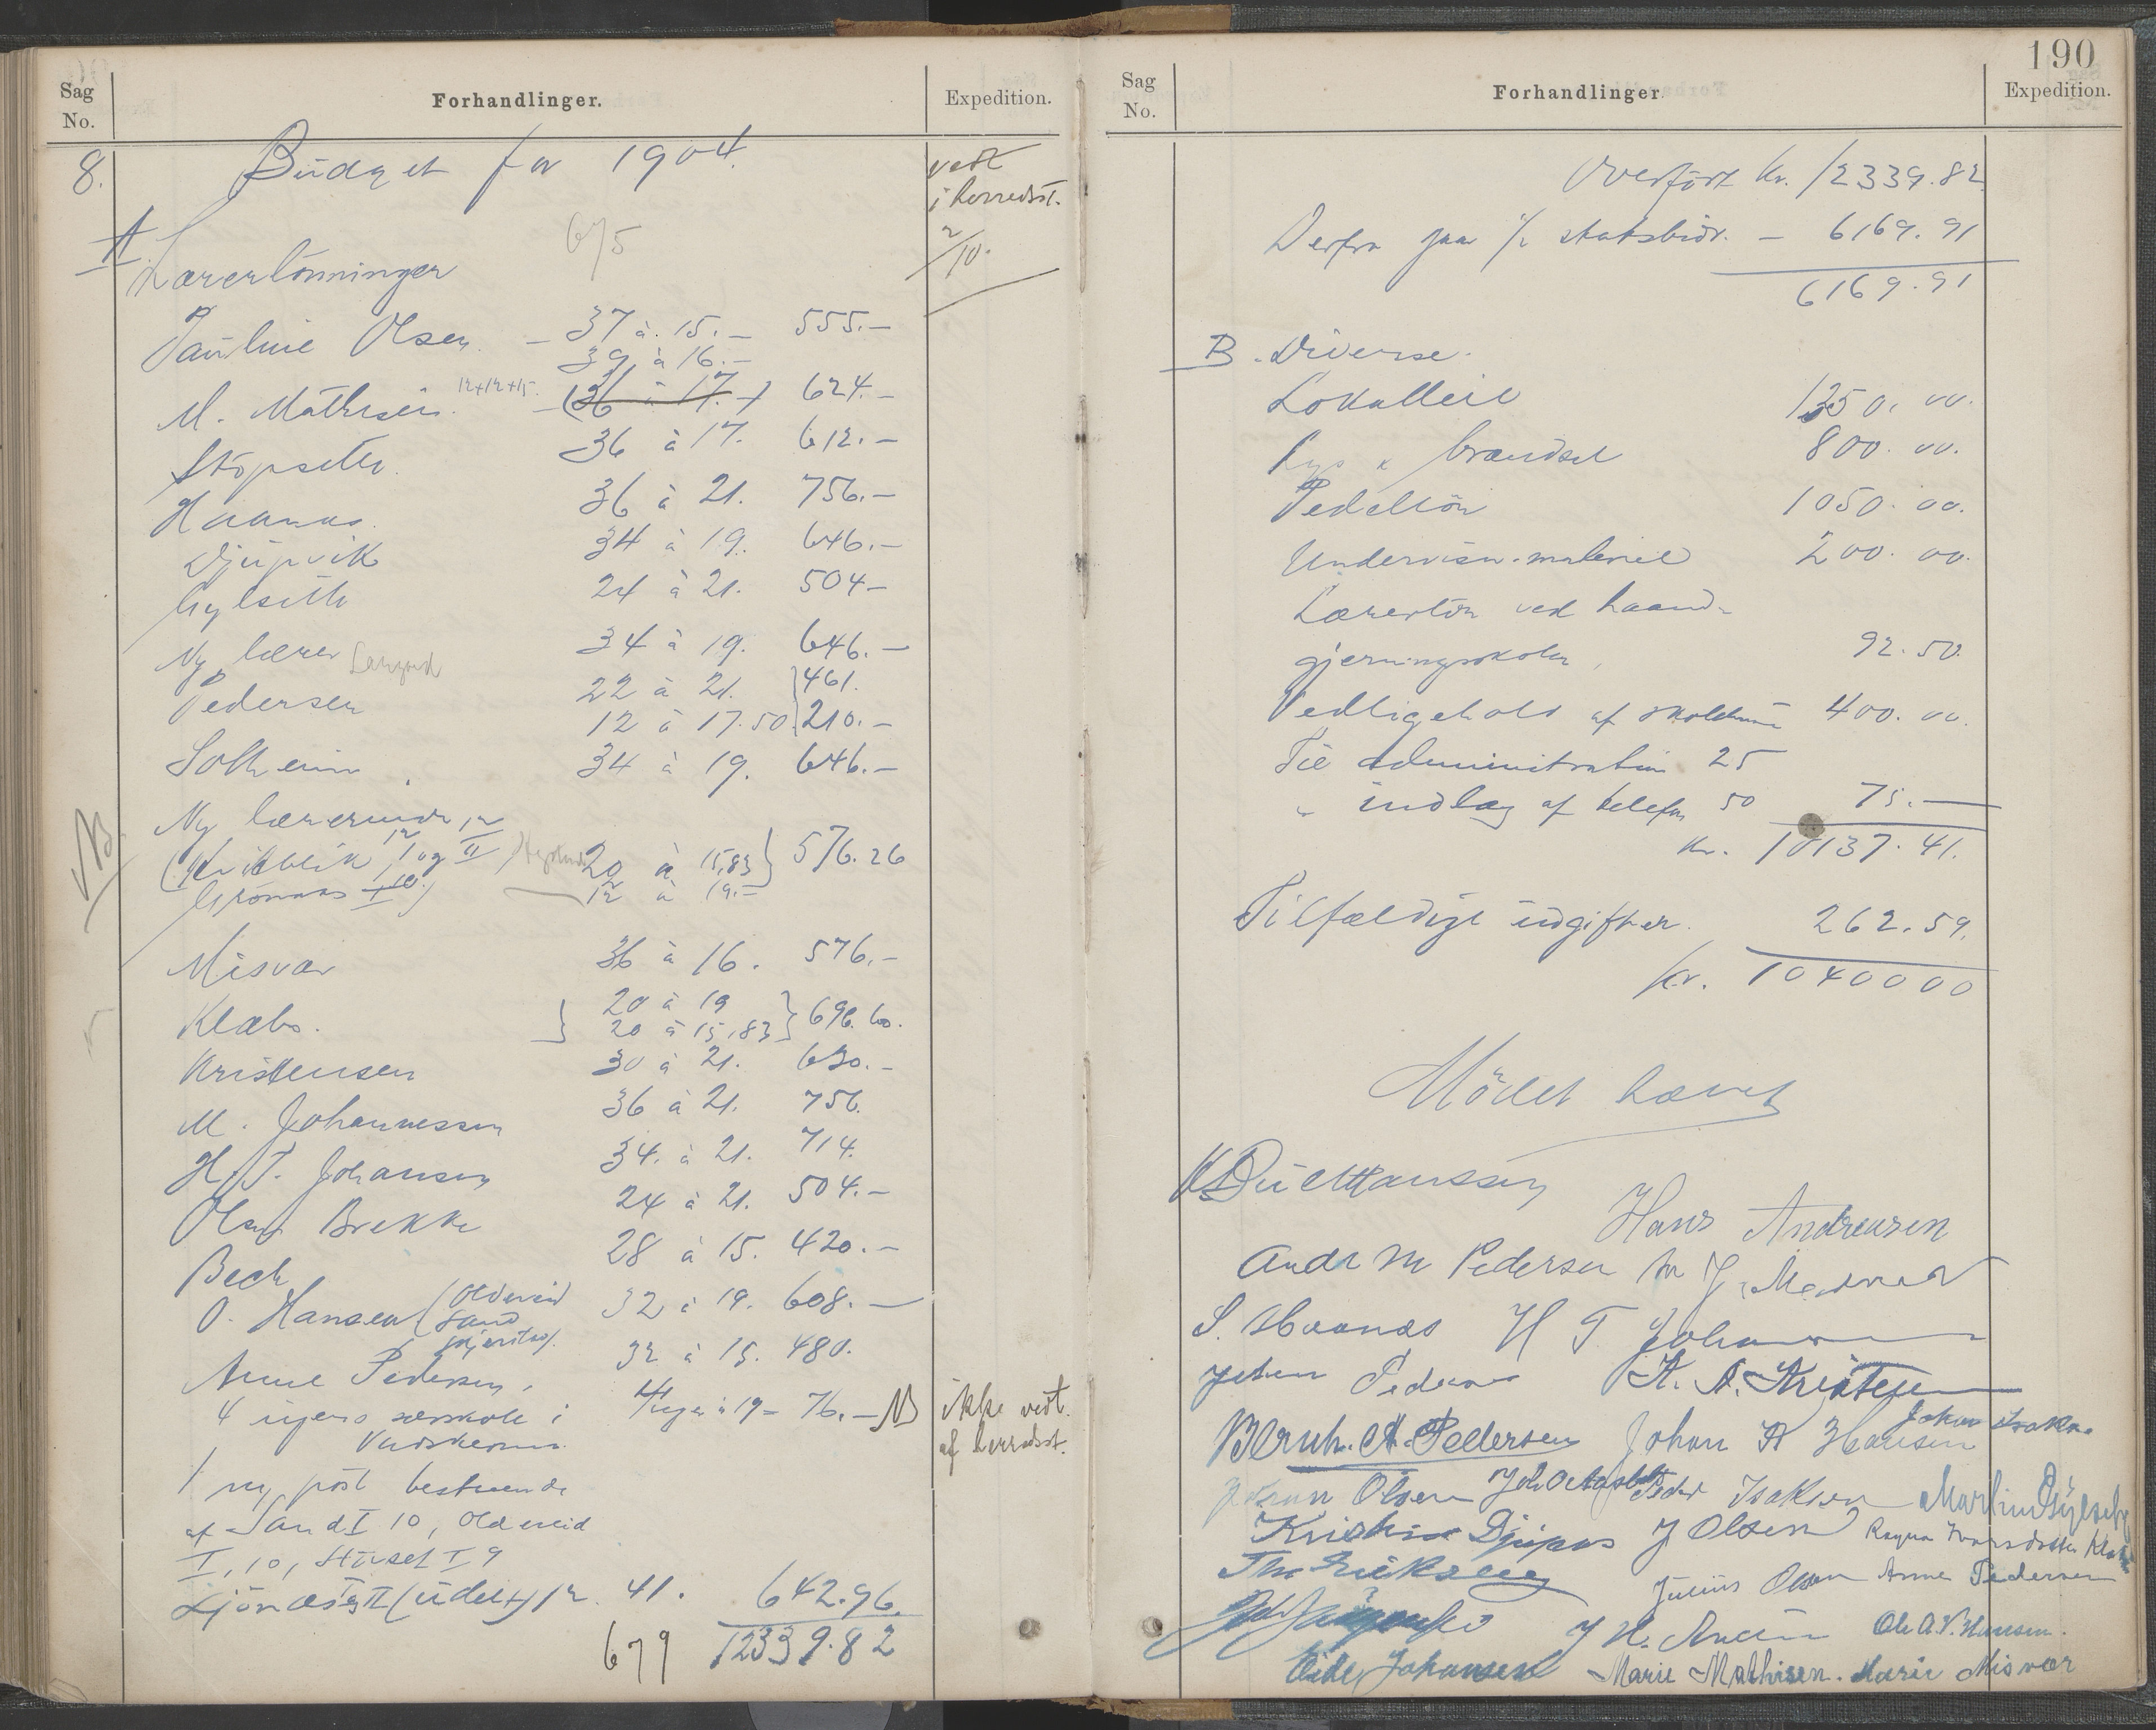 Sag
No.
Forhandlinger.
Expedition.
8.
Budget for 1904.
vedt
i herredsst.
2/10.
A.
675
Lærerlönninger
Pauline Olsen. — 37 à 15.— 555.—
39 à 16.—
M. Mathisen. 12+12+15. — (36 à 17.—) 624.—
Stöpseth. 36 à 17. 612.—
Haanæs. 36 à 21. 756.—
Djupvik 34 à 19. 646.—
Gylseth 24 à 21. 504—
Ny lærer 34 à 19. 646.—
Pedersen 22 à 21. 461.
12 à 17.50. 210.—
Solheim. 34 à 19. 646.—
NB
Ny lærerinde 12
I og II 20 à 15,83 } 576.26
12 à 19.—
Misvær 36 à 16. 576.—
Klæbo. } 20 à 19
20 à 15,83 } 696.60.
Kristensen 30 à 21. 630.—
M. Johannessen 36 à 21. 756.
H. T. Johansen 34. à 21. 714.
Olaf Brekke 24 à 21. 504.—
Bech 28 à 15. 420.—
O. Hansen (Oldereid
Sand 32 à 19. 608.—
Anne Pedersen, 32 à 15. 480.
4 ugers særskole i 4 uger à 19 = 76.— NB
ikke vedt.
af herredsst.
1 ny post bestaaende
af Sand I 10, Oldereid
I, 10, Stuset I 9
II (udelt) 12. 41. 642.96.
679 12339.82
190
Sag
No.
Forhandlinger
Expedition.
Overfört kr. 12339.82
Derfra gaar 1/2 statsbidr. — 6169.91
6169.91
B. Diverse.
Lokalleie 1350.00.
Lys & brændsel 800.00.
Pedellön 1050.00.
Undervisn.materiel 200.00.
Lærerlön ved haand-
gjerningsskoler, 92.50.
Vedligehold af skolehuse 400.00.
Til administration 25
" indlæg af telefon 50 75.—
Kr. 10137.41.
Tilfældige udgifter. 262.59.
kr. 1040000
Mödet hævet
Hans Andreasen
Andr M Pedersen
S. Haanæs H T Johansen
Johan Pedersen K. A. Kristensen
Bernh. A. Pedersen Johan A Hansen Johan Isaks.
Johan Olsen Peder Isaksen Martin Gylseth
Kristine Djupvik J Olsen Ragna Ivarsdatter Klæbo
Julius Olsen Anne Pedersen
Ole A. V. Hansen.
Johansen Marie Mathisen. Marie Misvær